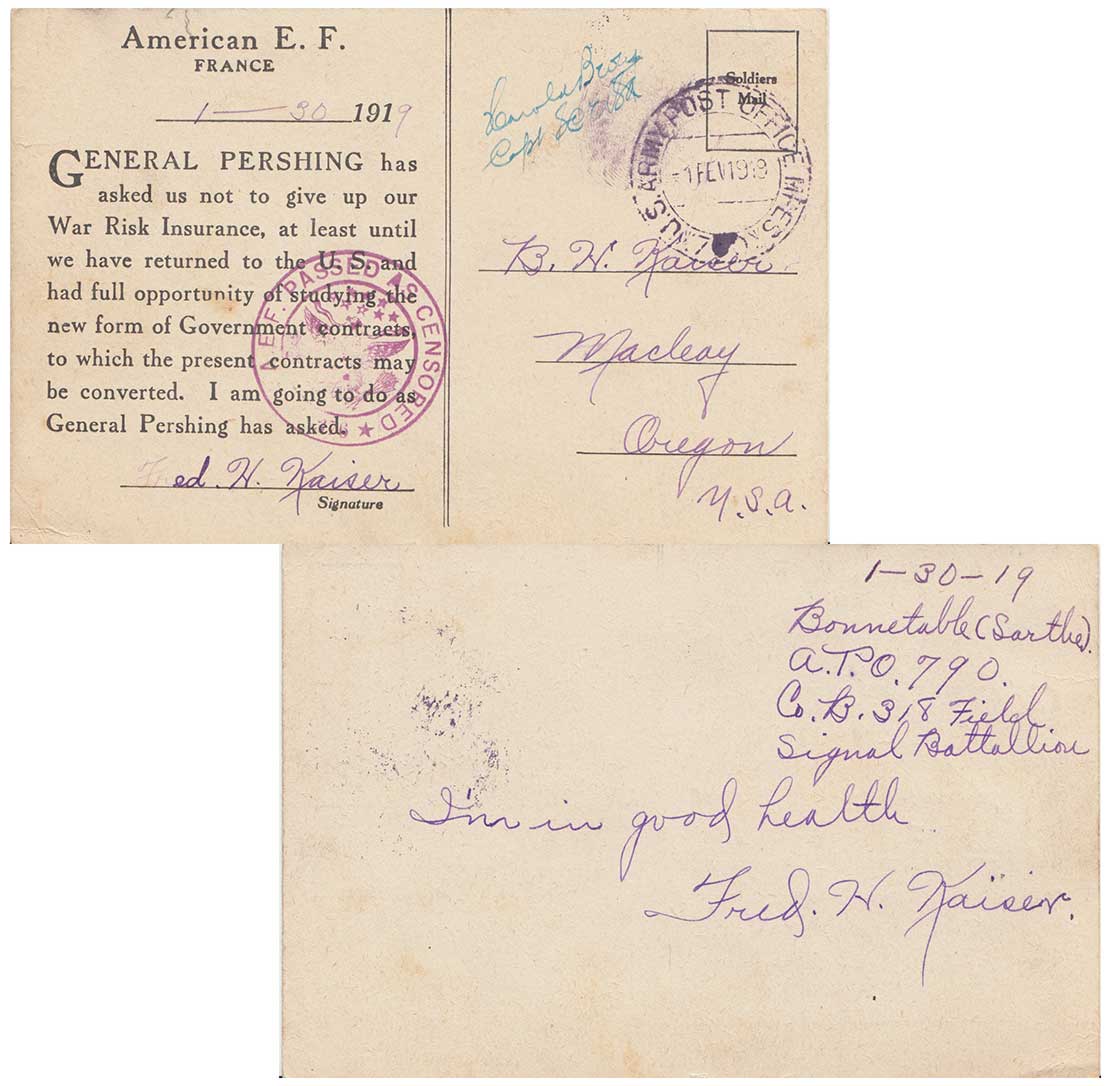 American E. F.
FRANCE
1 — 30 1919
GENERAL PERSHING has
asked us not to give up our
War Risk Insurance, at least until
we have returned to the U. S. and
had full opportunity of studying the
new form of Government contracts,
to which the present contracts may
be converted. I am going to do as
General Pershing has asked.
Fred. H. Kaiser
Signature
A.E.F. PASSED AS CENSORED
Capt
Soldiers
Mail
U.S. ARMY POST OFFICE M.P.E.S.
1 FEV 1919
B. H. Kaiser
Macleay
Oregon
U.S.A.
1-30-19
Bonnetable (Sarthe).
A.P.O. 790.
Co. B. 318 Field
Signal Battallion
I'm in good health
Fred. H. Kaiser.